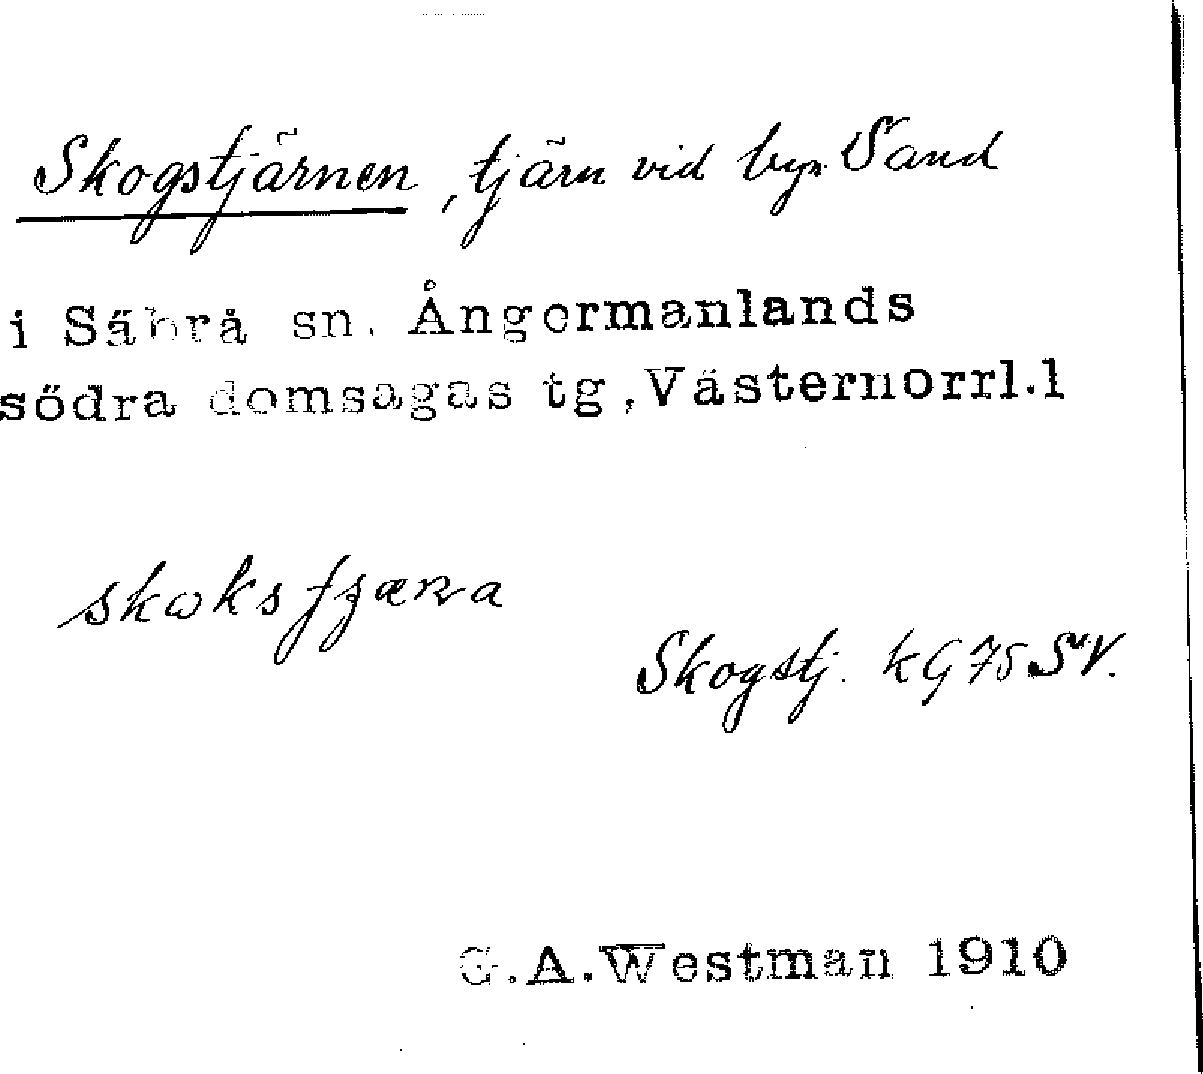 Skogstjärnen, tjärn vid byn Sand
i Säbrå sn. Ångermanlands
södra domsagas tg, Västernorrl.l
Skogstj. kG75 SV.
G.A.Westman 1910